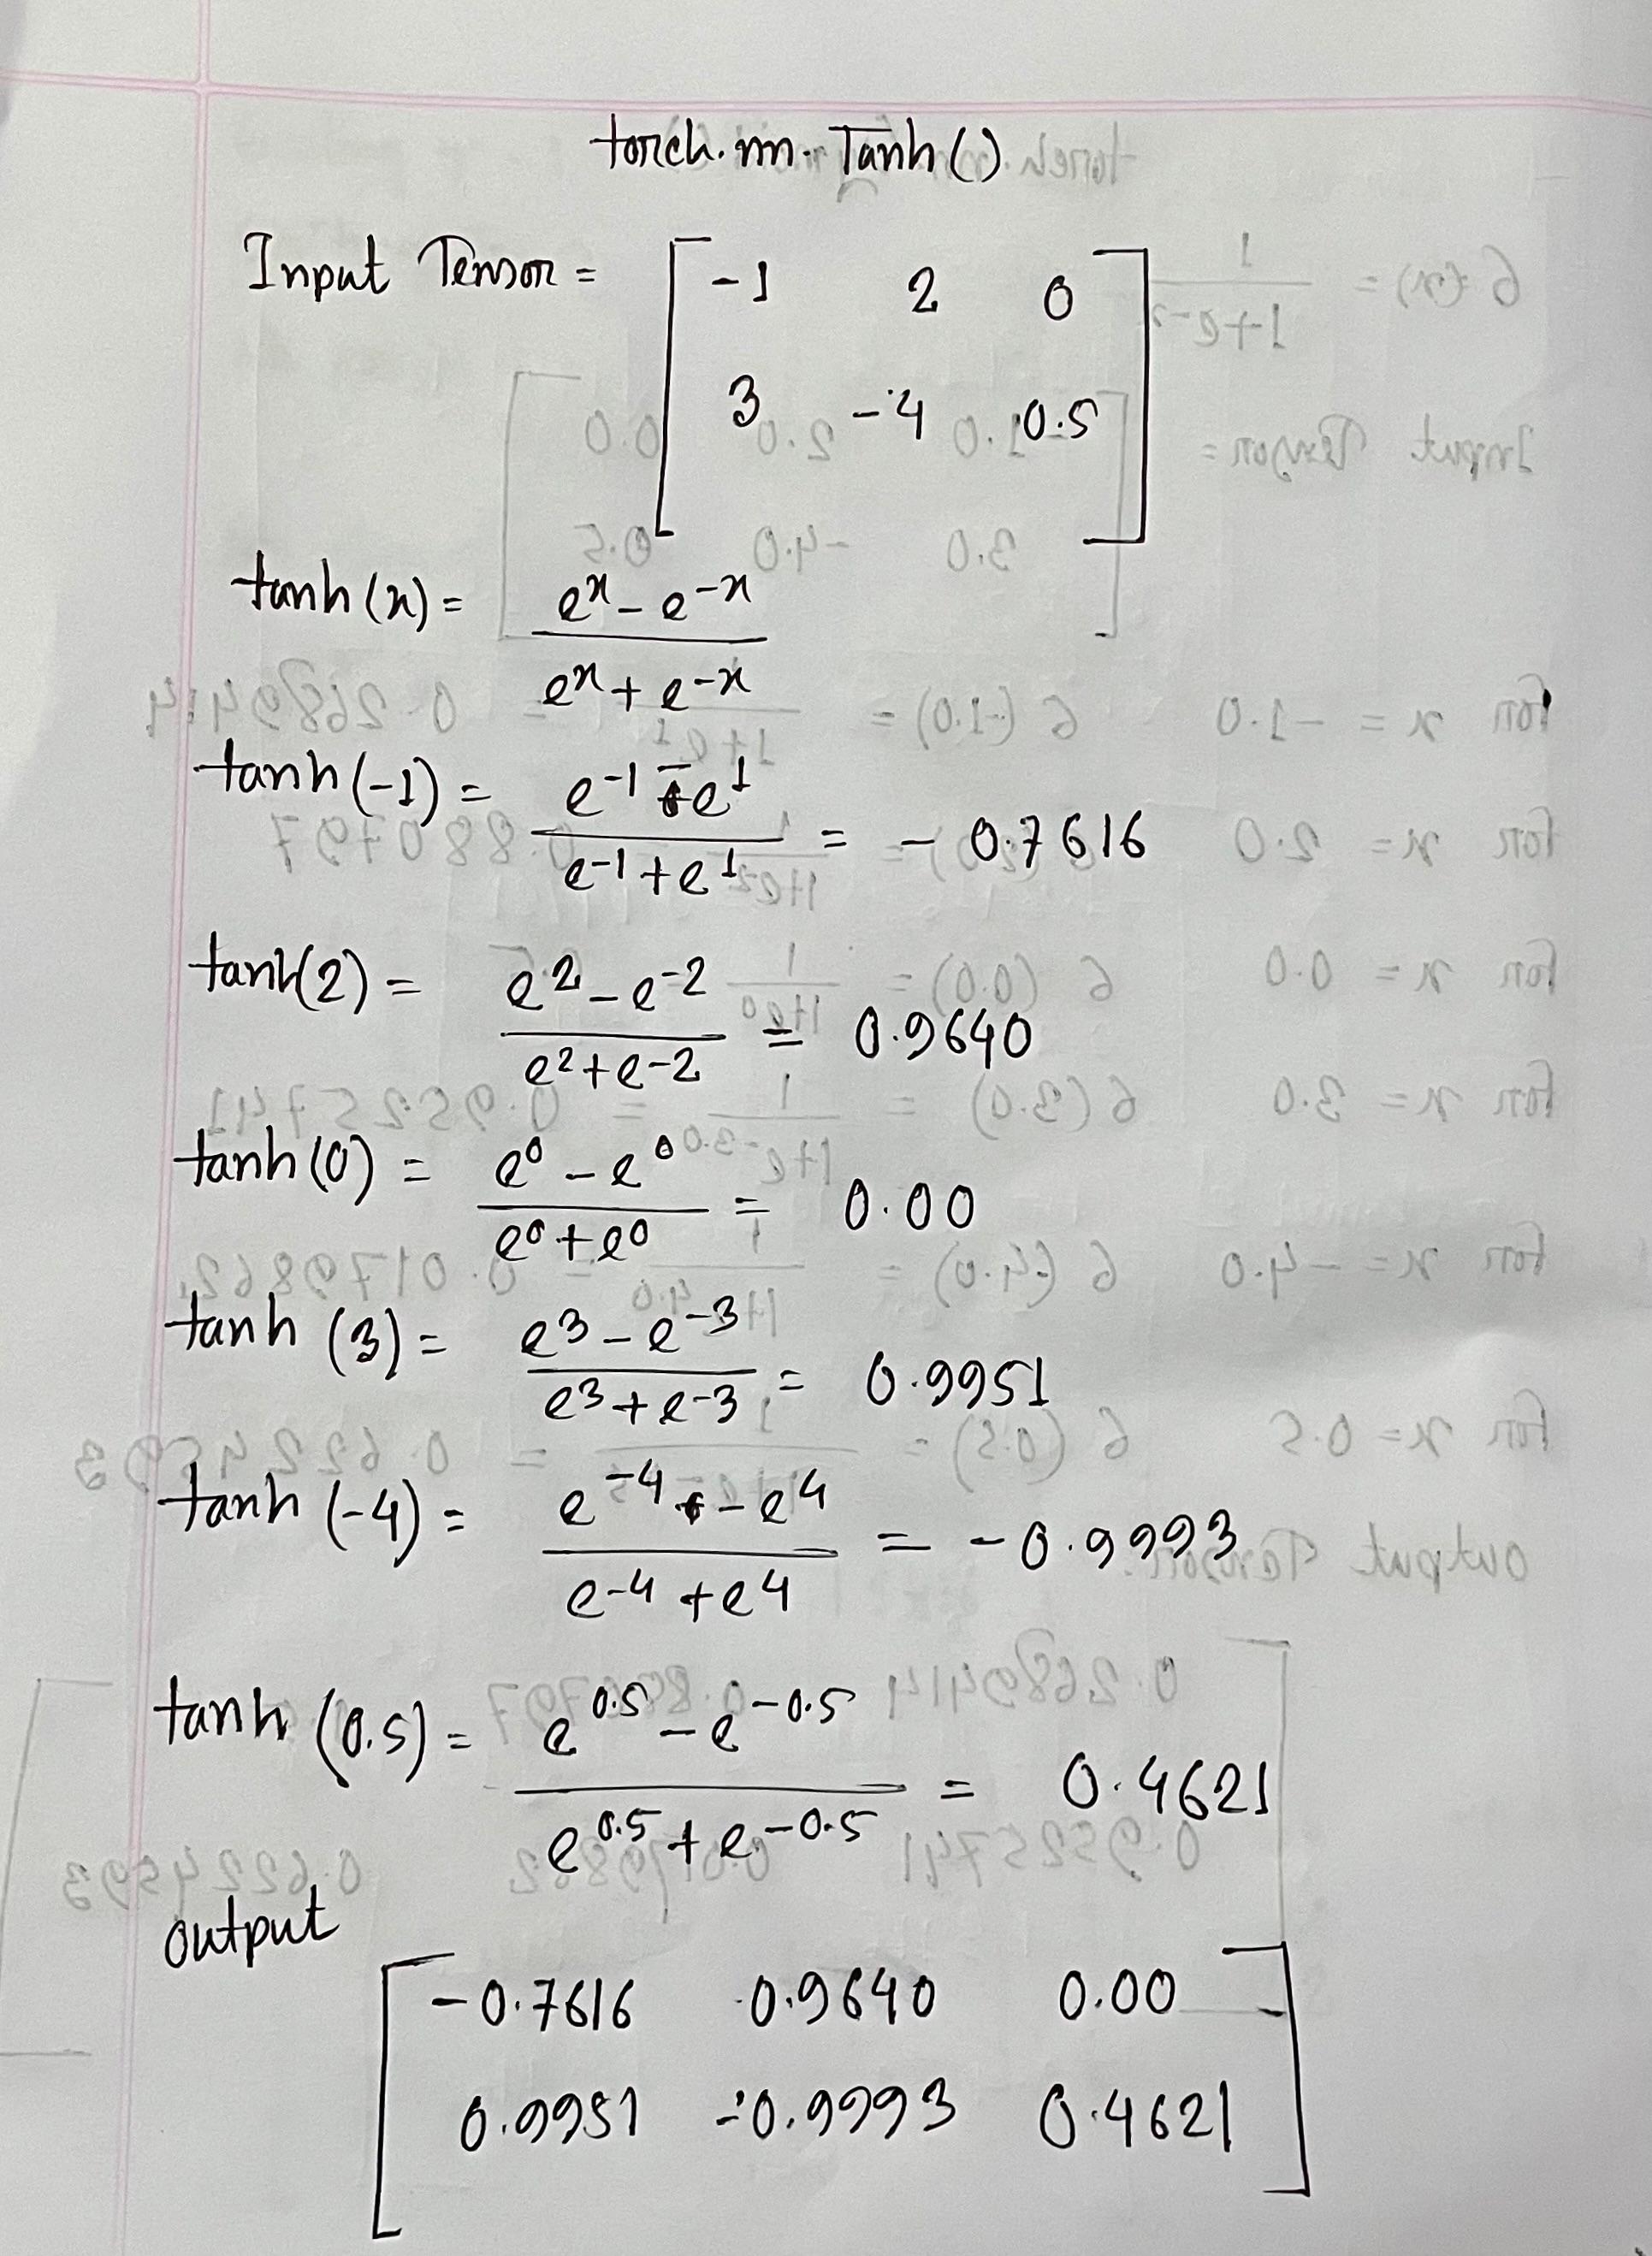 torch.nn.Tanh()
Input Tensor = [ -1 2 0
3 -4 0.5 ]
tanh(x) = (e^x - e^-x) / (e^x + e^-x)
tanh(-1) = (e^-1 - e^1) / (e^-1 + e^1) = -0.7616
tanh(2) = (e^2 - e^-2) / (e^2 + e^-2) = 0.9640
tanh(0) = (e^0 - e^0) / (e^0 + e^0) = 0.00
tanh(3) = (e^3 - e^-3) / (e^3 + e^-3) = 0.9951
tanh(-4) = (e^-4 - e^4) / (e^-4 + e^4) = -0.9993
tanh(0.5) = (e^0.5 - e^-0.5) / (e^0.5 + e^-0.5) = 0.4621
output
[ -0.7616 0.9640 0.00
0.9951 -0.9993 0.4621 ]